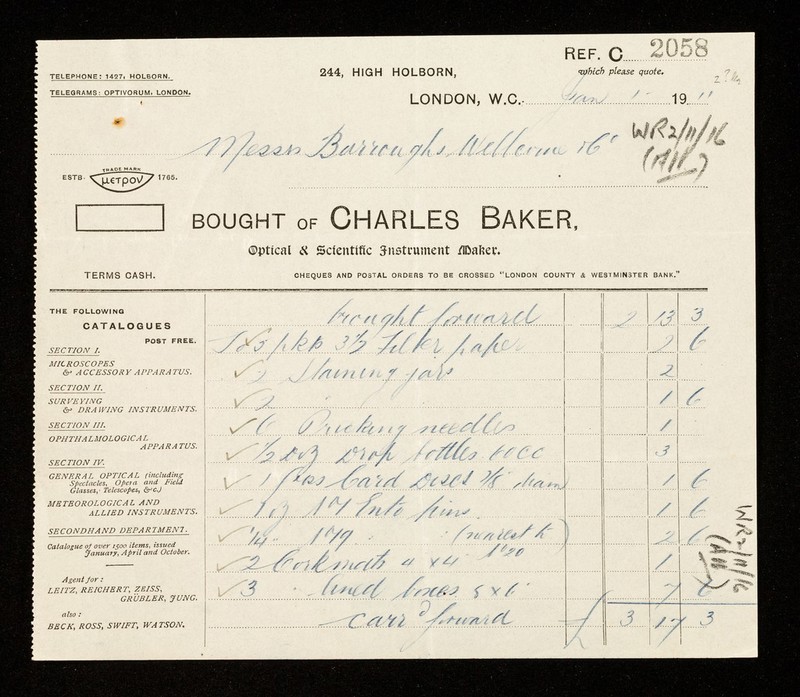 REF. C 2058
which please quote.
TELEPHONE: 1427, HOLBORN.
TELEGRAMS: OPTIVORUM, LONDON.
244, HIGH HOLBORN,
LONDON, W.C. Jan 1 19 11
Messrs Burroughs Wellcome & Co
WR2/11/16
(AII)
TRADE MARK
ESTB. μετρον 1765.
BOUGHT OF CHARLES BAKER,
Optical & Scientific Instrument Maker.
TERMS CASH.
CHEQUES AND POSTAL ORDERS TO BE CROSSED "LONDON COUNTY & WESTMINSTER BANK."
THE FOLLOWING
CATALOGUES
POST FREE.
SECTION I.
MICROSCOPES
& ACCESSORY APPARATUS.
SECTION II.
SURVEYING
& DRAWING INSTRUMENTS.
SECTION III.
OPHTHALMOLOGICAL
APPARATUS.
SECTION IV.
GENERAL OPTICAL (including
Spectacles, Opera and Field
Glasses, Telescopes, &c.)
METEOROLOGICAL AND
ALLIED INSTRUMENTS.
SECONDHAND DEPARTMENT.
Catalogue of over 1500 items, issued
January, April and October.
Agent for:
LEITZ, REICHERT, ZEISS,
GRÜBLER, JUNG.
also:
BECK, ROSS, SWIFT, WATSON.
brought forward 2 13 3
3 pkts Filter paper 2 6
2 Staining jars 2
2 " 1 6
6 Pricking needles 1
1/2 doz drop bottles 60cc 3
1 gross Card Discs 7/8 diam 1 6
1 oz Ento pins 1 6
(nearest to 2 6
2 Cork mats 4 x 4 1
3 " lined boxes 5 x 6 7 6
carrd forward £ 3 17 3
WR2/11/16
(AII)